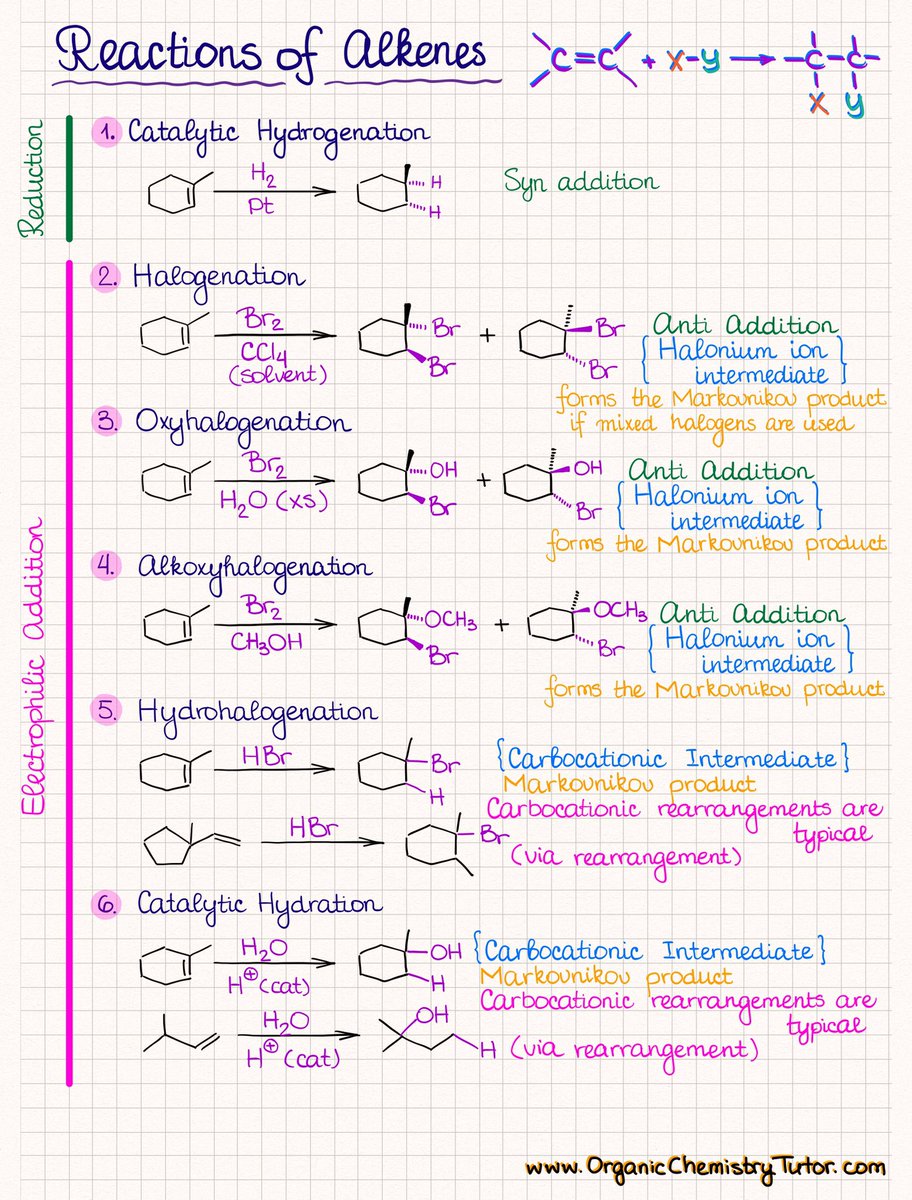 Reactions of Alkenes
C=C + X-Y → -C-C-
X Y
Reduction
1. Catalytic Hydrogenation
H₂
Pt
H
H
Syn addition
Electrophilic Addition
2. Halogenation
Br₂
CCl₄
(solvent)
Br
Br
+
Br
Br
Anti Addition
{Halonium ion
intermediate}
forms the Markovnikov product
if mixed halogens are used
3. Oxyhalogenation
Br₂
H₂O (xs)
OH
Br
+
OH
Br
Anti Addition
{Halonium ion
intermediate}
forms the Markovnikov product
4. Alkoxyhalogenation
Br₂
CH₃OH
OCH₃
Br
+
OCH₃
Br
Anti Addition
{Halonium ion
intermediate}
forms the Markovnikov product
5. Hydrohalogenation
HBr
Br
H
{Carbocationic Intermediate}
Markovnikov product
Carbocationic rearrangements are
typical
HBr
Br
(via rearrangement)
6. Catalytic Hydration
H₂O
H⊕(cat)
OH
H
{Carbocationic Intermediate}
Markovnikov product
Carbocationic rearrangements are
typical
H₂O
H⊕(cat)
OH
H (via rearrangement)
www.OrganicChemistryTutor.com